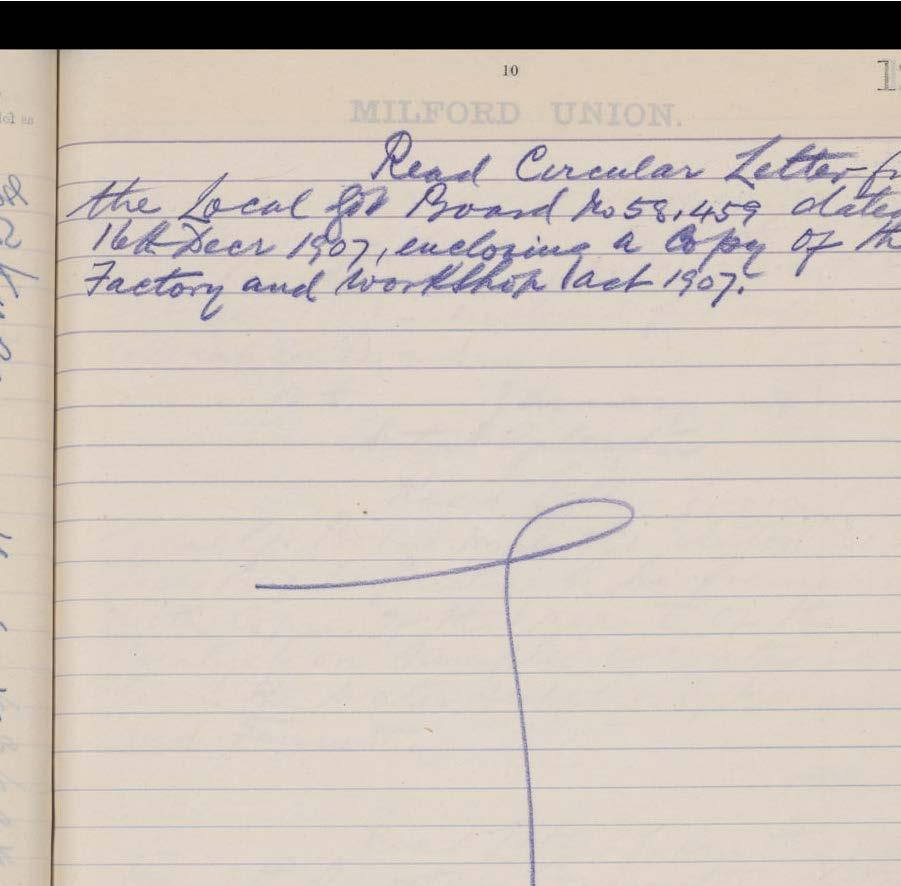 10
MILFORD UNION.
Read Circular Letter
the Local Govt Board No 58,459 dated
16th Decr 1907, enclosing a copy of the
Factory and Workshop Act 1907.